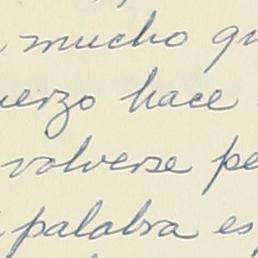 mucho qu
uerzo hace
volverse pe
palabra es